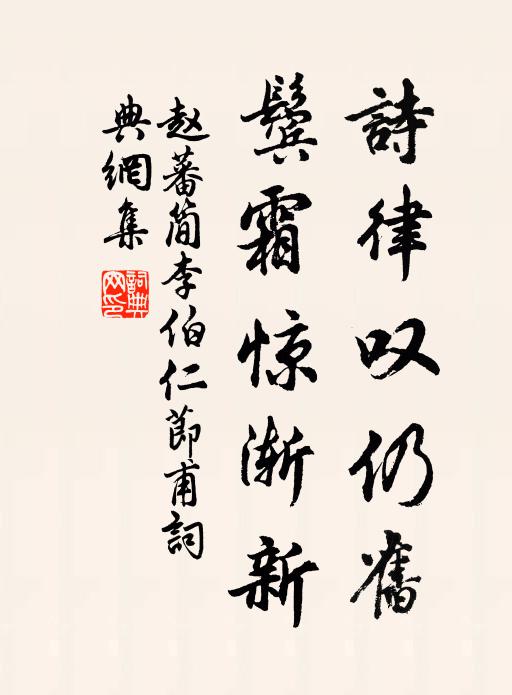 詩律叹仍舊
鬓霜惊渐新
赵蕃简李伯仁節甫詞
典網集
詞典网印